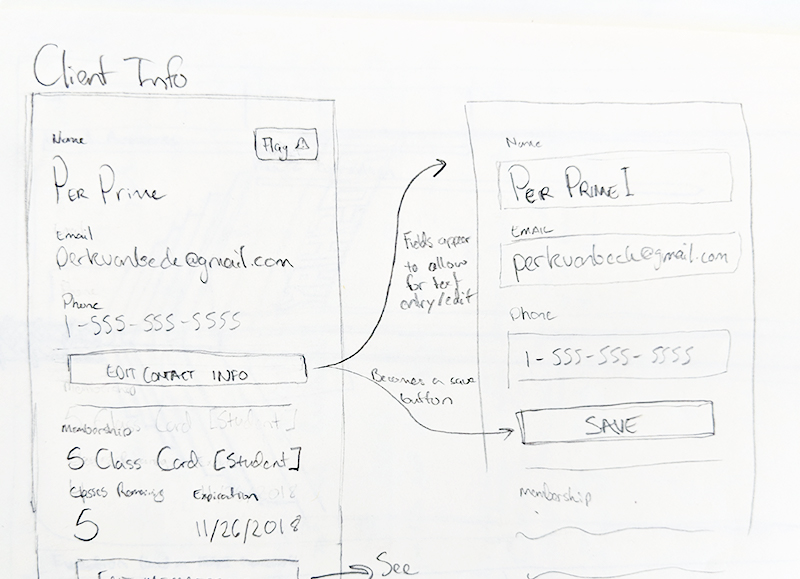 Client Info
Name
Flag
Per Prime
Email
Phone
1-555-555-5555
EDIT CONTACT INFO
Membership
5 Class Card [Student]
Classes Remaining Expiration
5 11/26/2018
See
Fields appear
to allow
for text
entry/edit
Becomes a save
button
Name
PER PRIME
EMAIL
Phone
1-555-555-5555
SAVE
Membership